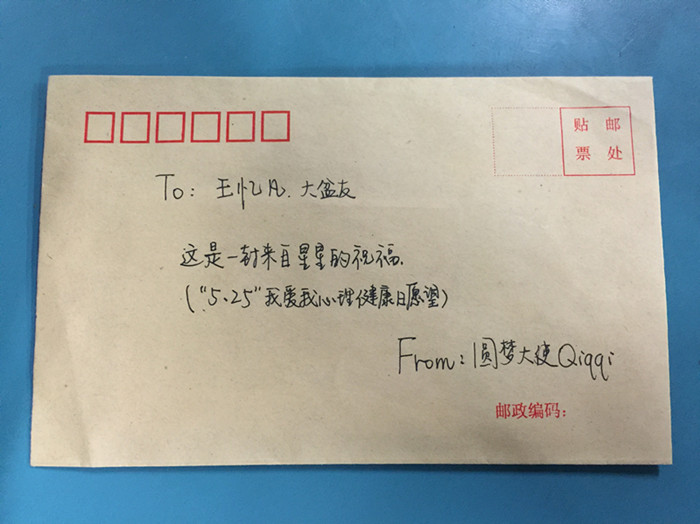 贴 邮
票 处
To: 王忆凡.大盆友
这是一封来自星星的祝福.
("5.25"我爱我心理健康日愿望)
From: 圆梦大使Qiqqi
邮政编码: